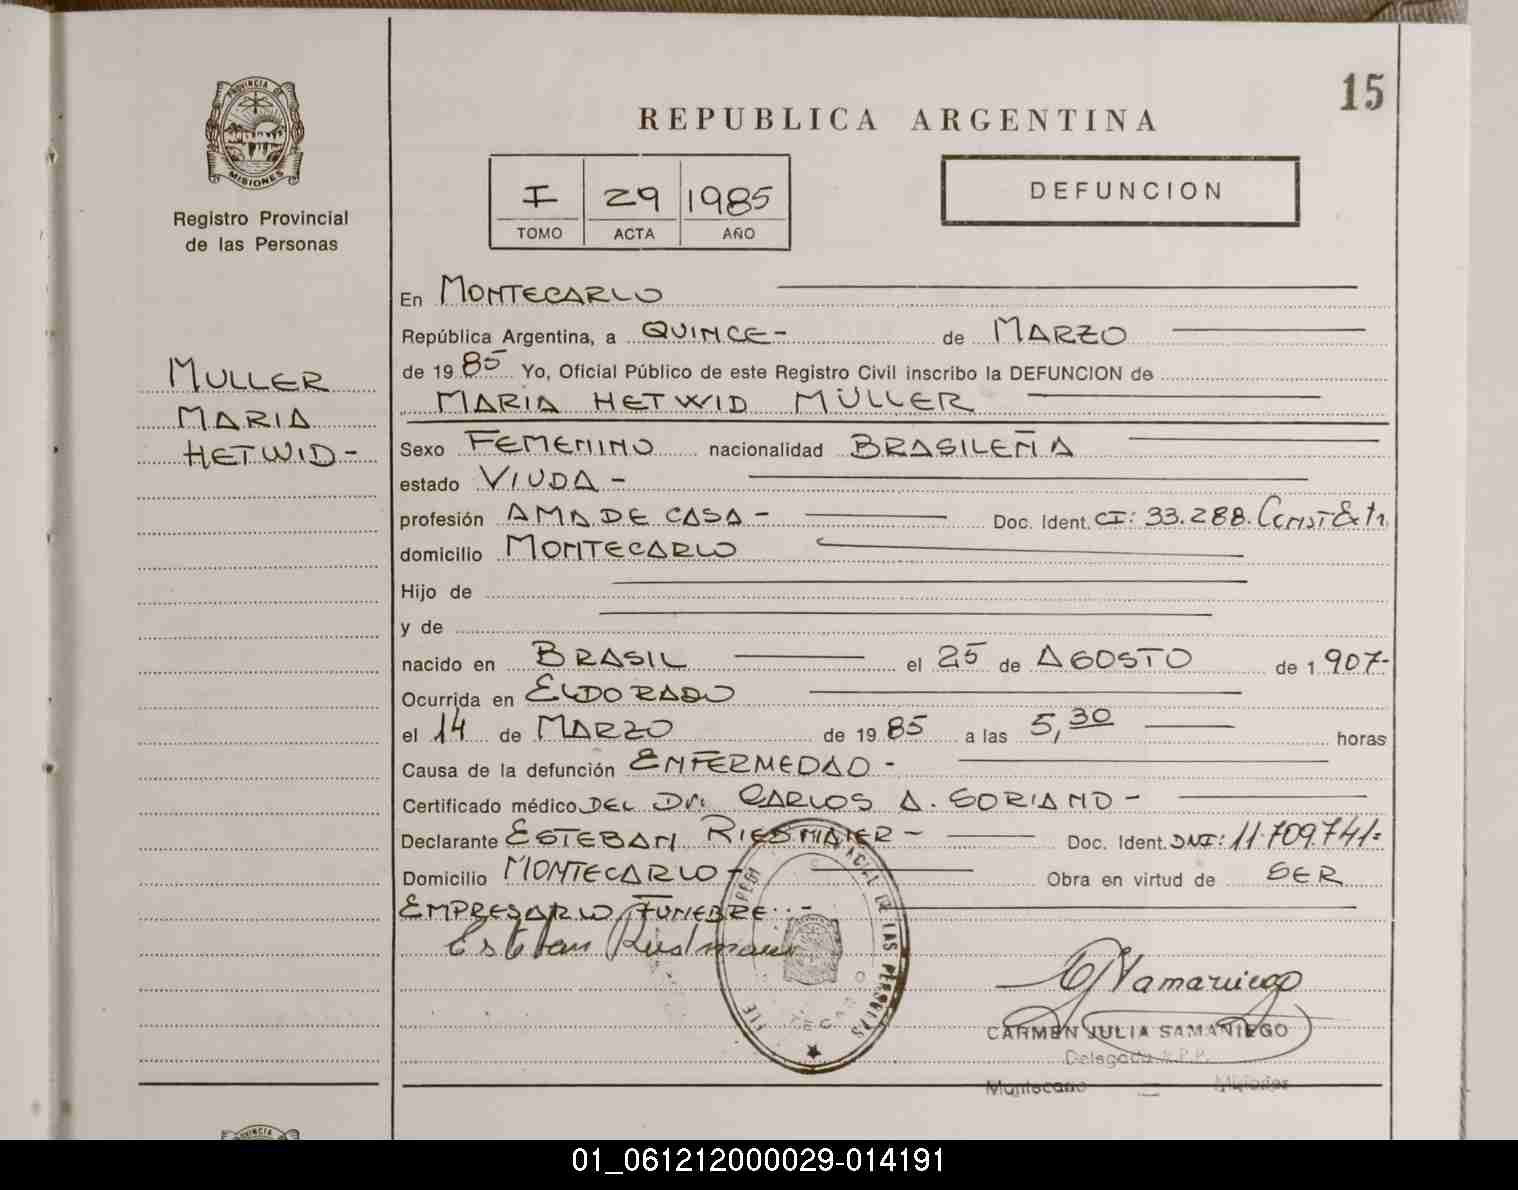 15
PROVINCIA DE
MISIONES
Registro Provincial
de las Personas
REPUBLICA ARGENTINA
I 29 1985
TOMO ACTA AÑO
DEFUNCION
MULLER
MARIA
HETWID-
En MONTECARLO
República Argentina, a QUINCE- de MARZO
de 1985 Yo, Oficial Público de este Registro Civil inscribo la DEFUNCION de
MARIA HETWID MÜLLER
Sexo FEMENINO nacionalidad BRASILEÑA
estado VIUDA-
profesión AMA DE CASA- Doc. Ident. CI: 33.288.
domicilio MONTECARLO
Hijo de
y de
nacido en BRASIL el 25 de AGOSTO de 1907-
Ocurrida en ELDORADO
el 14 de MARZO de 1985 a las 5,30 horas
Causa de la defunción ENFERMEDAD-
Certificado médico DEL Dr. CARLOS A. SORIANO-
Declarante ESTEBAN RIEDMAIER- Doc. Ident. DNI: 11.709.741=
Domicilio MONTECARLO- Obra en virtud de SER
EMPRESARIO FUNEBRE-
Esteban Riedmaier
DE LAS PERSONAS
CARMEN JULIA SAMANIEGO
Delegada R.P.P.
Montecarlo - Misiones
PROVINCIA
01_061212000029-014191